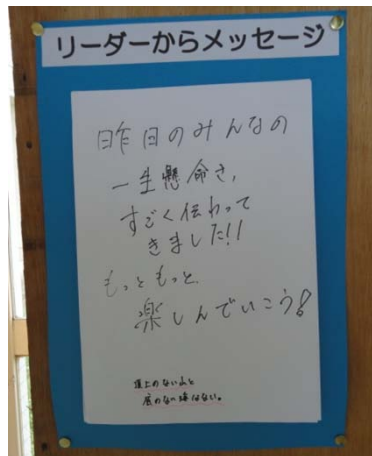 リーダーからメッセージ
昨日のみんなの
一生懸命さ、
すごく伝わって
きました!!
もっともっと、
楽しんでいこう!
頂上のない山と
底のない海はない。